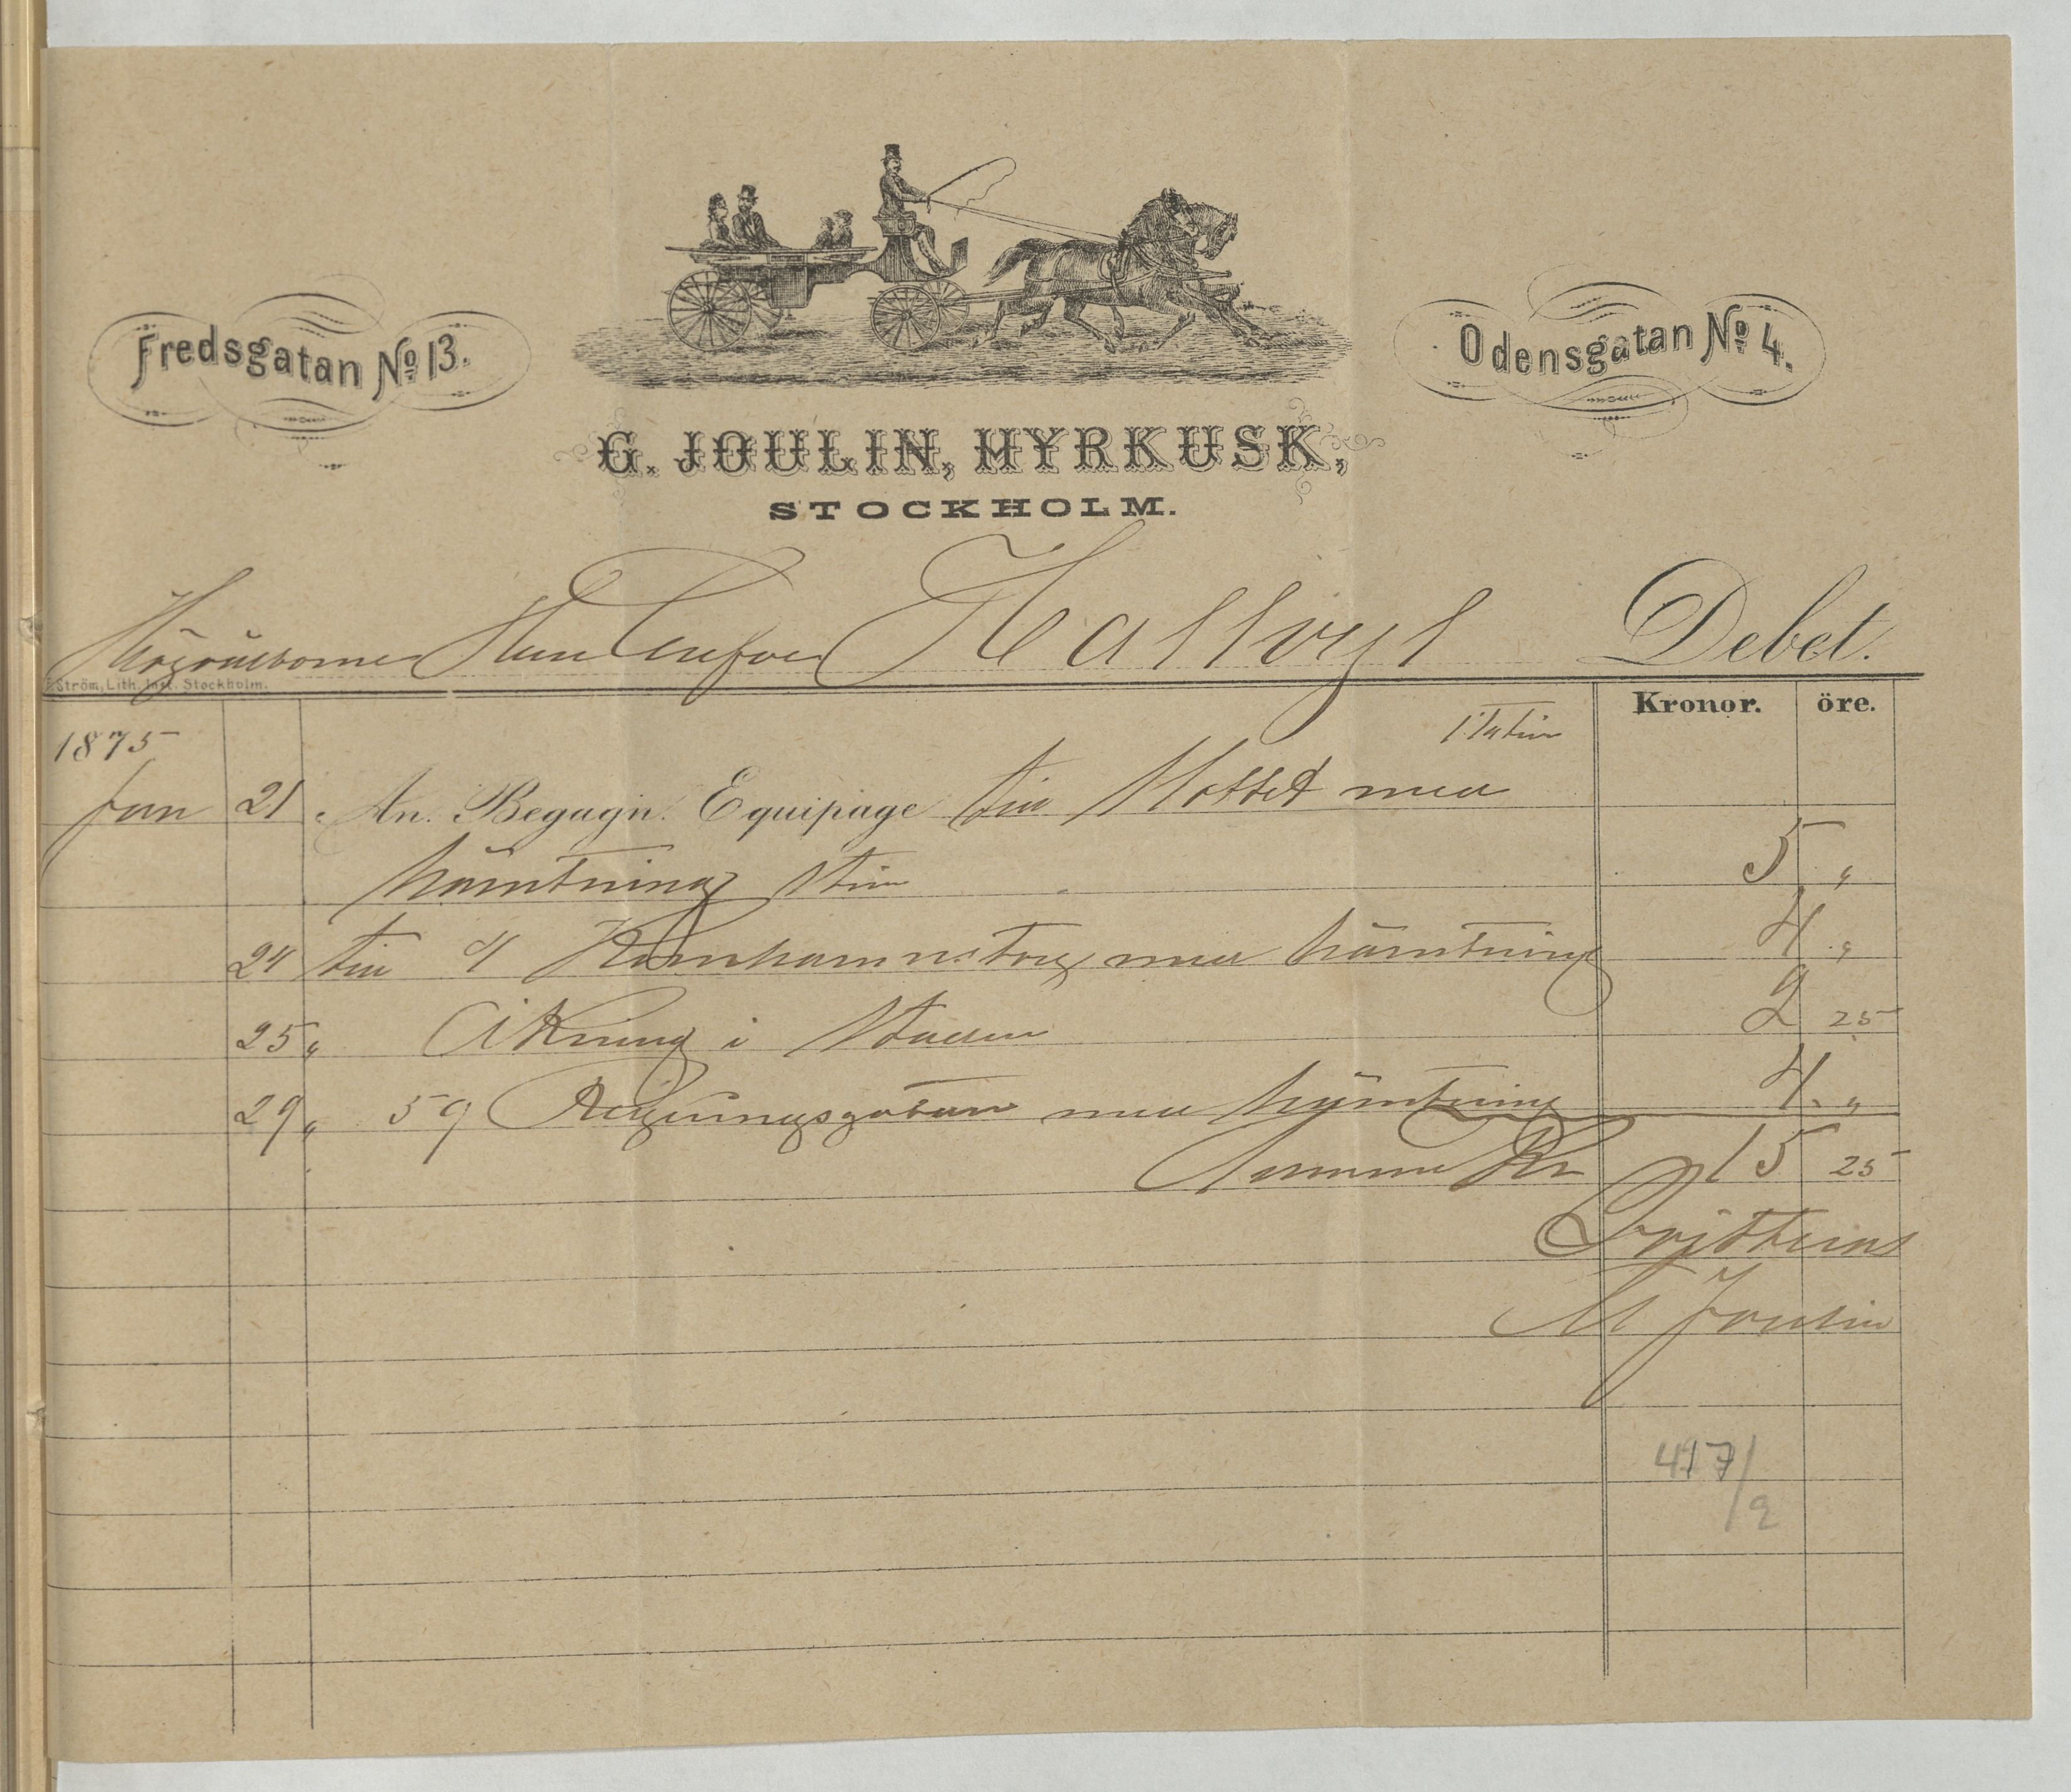 Fredsgatan No 13.
Odensgatan No 4.
G. JOULIN, HYRKUSK,
STOCKHOLM.
Högvälborne Herr Grefve Hallvyl Debet.
Ström, Lith. Inst. Stockholm.
Kronor. öre.
1875
Jan 21 An. Begagn. Equipage till Slottet med
hämtning 5 "
24 till 4 Kornhamnstorg med hämtning 4 "
25 " Åkning i Staden 2 25
29 " 59 Regeringsgatan med hämtning 4 "
Summa Kr 15 25
Qvitteras
Joulin
417/2